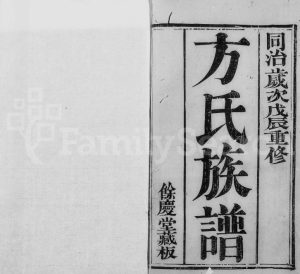 同治歲次戊辰重修
方氏族譜
餘慶堂藏板
FamilySearch